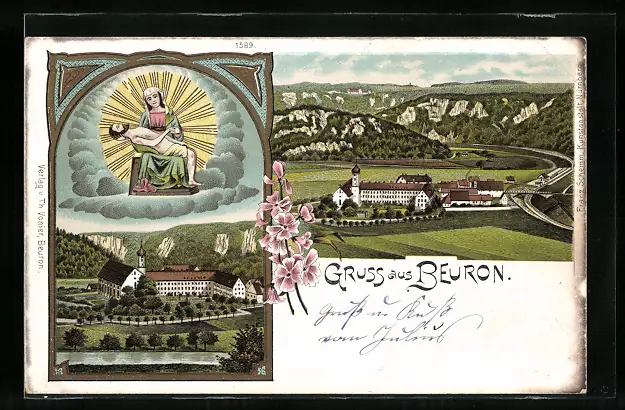 1589.
Verlag v. Th. Vomier, Beuron.
Franz Schemm, Kunstanstalt, Nürnberg.
GRUSS aus BEURON.
Gruß u Kuß
vom Julius